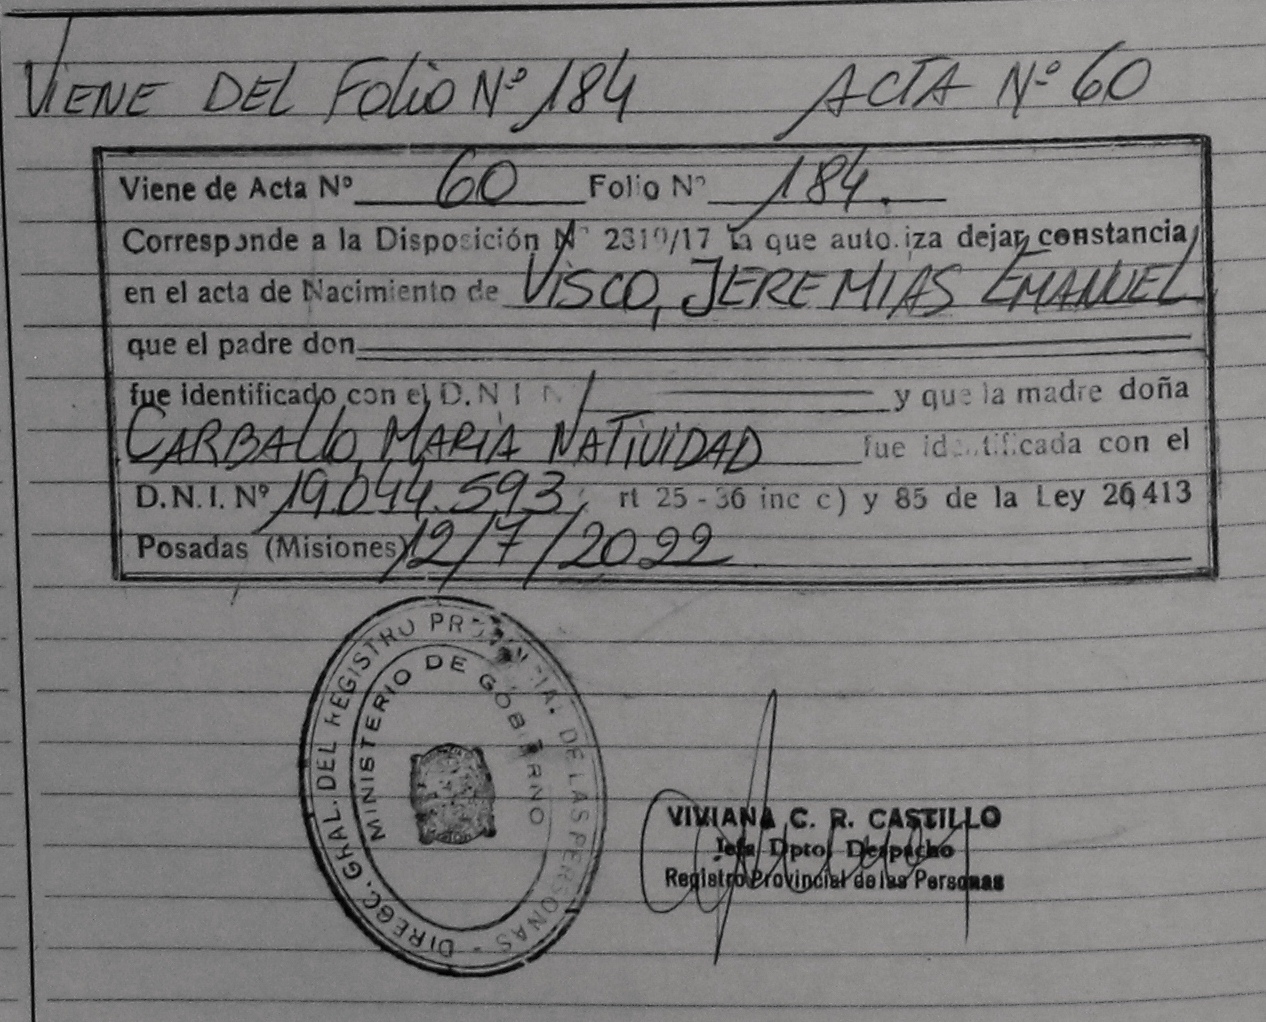 VIENE DEL Folio Nº 184 ACTA Nº 60
Viene de Acta Nº 60 Folio Nº 184.
Corresponde a la Disposición Nº 2310/17 la que autoriza dejar constancia
en el acta de Nacimiento de VISCO, JEREMIAS EMANUEL
que el padre don
fue identificado con el D.N.I. N y que la madre doña
CARBALLO MARIA NATIVIDAD fue identificada con el
D.N.I. Nº 19.044.593, rt 25 - 36 inc c) y 85 de la Ley 26413
Posadas (Misiones) 12/7/2022
DIRECC. GRAL. DEL REGISTRO PROVINCIAL DE LAS PERSONAS -
MINISTERIO DE GOBIERNO
VIVIANA C. R. CASTILLO
Jefa Dpto. Despacho
Registro Provincial de las Personas